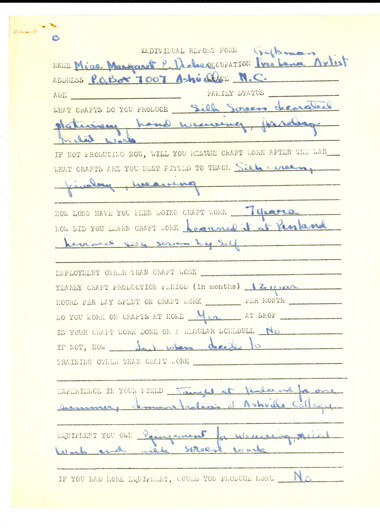 INDIVIDUAL REPORT FORM Craftsman
NAME Miss Margaret E. OCCUPATION Freelance Artist
ADDRESS P.O. Box 7007 Ashville N.C.
AGE FAMILY STATUS
WHAT CRAFTS DO YOU PRODUCE Silk Screen decorated
stationery, hand weaving, jewelry
metal work
IF NOT PRODUCING NOW, WILL YOU RESUME CRAFT WORK AFTER THE WAR
WHAT CRAFTS ARE YOU BEST FITTED TO TEACH Silk-screen,
jewelry, weaving
HOW LONG HAVE YOU BEEN DOING CRAFT WORK 7 years
HOW DID YOU LEARN CRAFT WORK Learned it at Penland
learned silk screen by self
EMPLOYMENT OTHER THAN CRAFT WORK
YEARLY CRAFT PRODUCTION PERIOD (in months) year
HOURS PER DAY SPENT ON CRAFT WORK PER MONTH
DO YOU WORK ON CRAFTS AT HOME Yes AT SHOP
IS YOUR CRAFT WORK DONE ON A REGULAR SCHEDULE No
IF NOT, HOW Just when decide to
TRAINING OTHER THAN CRAFT WORK
EXPERIENCE IN YOUR FIELD Taught at Penland for one
summer, demonstration at Ashville College
EQUIPMENT YOU OWN Equipment for weaving, metal
work and silk screen work
IF YOU HAD MORE EQUIPMENT, COULD YOU PRODUCE MORE No